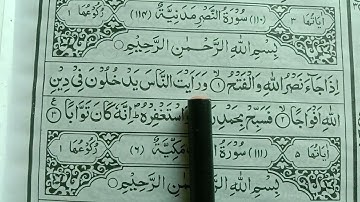 اٰیَاتُهَا ۳ (۱۱۰) سُوْرَةُ النَّصْرِ مَدَنِیَّةٌ (۱۱۴) رُكُوْعُهَا ۱
بِسْمِ اللّٰهِ الرَّحْمٰنِ الرَّحِیْمِ
اِذَا جَآءَ نَصْرُ اللّٰهِ وَالْفَتْحُ ۱ وَرَاَیْتَ النَّاسَ یَدْخُلُوْنَ فِیْ دِیْنِ
اللّٰهِ اَفْوَاجًا ۲ فَسَبِّحْ بِحَمْدِ وَاسْتَغْفِرْهُ ؕ اِنَّهٗ كَانَ تَوَّابًا ۳
اٰیَاتُهَا ۵ (۱۱۱) سُوْرَةُ مَكِّیَّةٌ (۶) رُكُوْعُهَا ۱
بِسْمِ اللّٰهِ الرَّحْمٰنِ الرَّحِیْمِ